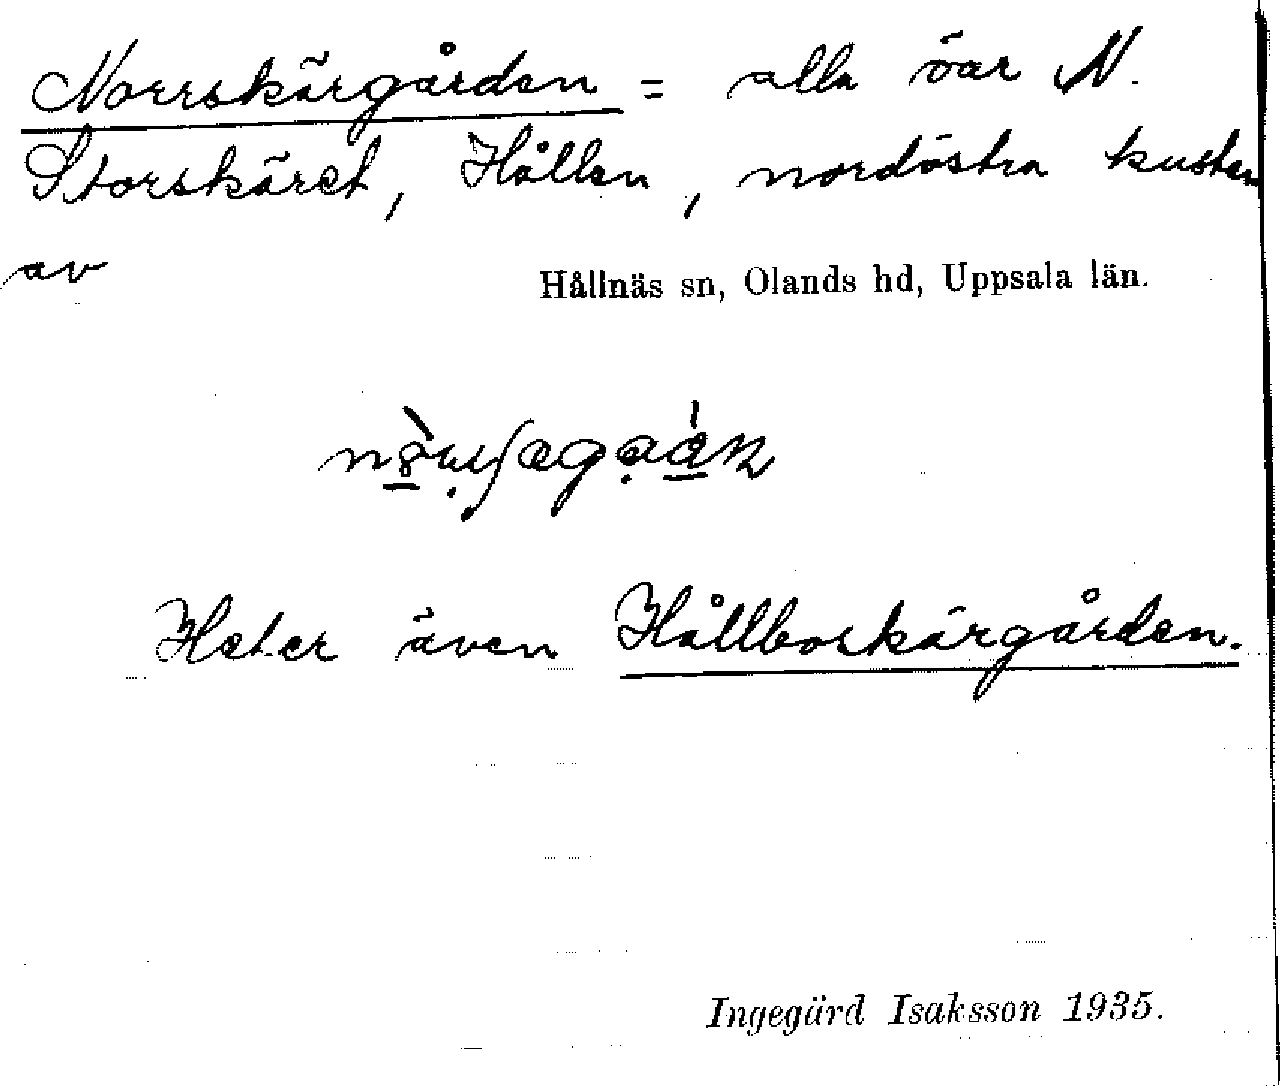 Norrskärgården = alla öar N.
Storskäret, Hållen, nordöstra kusten
av
Hållnäs sn, Olands hd, Uppsala län.
Heter även Hållboskärgården.
Ingegärd Isaksson 1935.